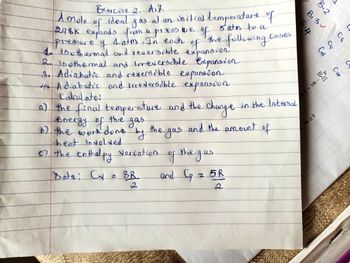 Exercise 2. A.7.
A mole of ideal gas at an initial temperature of
298K expands from a pressure of 5 atm to a
pressure of 1 atm. In each of the following cases
1. Isothermal and reversible expansion.
2. Isothermal and Irreversible Expansion
3. Adiabatic and reversible expansion
4. Adiabatic and Irreversible expansion
Calculate:
a) the final temperature and the change in the Internal
energy of the gas
b) the work done by the gas and the amount of
heat Involved
c) the enthalpy variation of the gas
Data: Cv = 3R/2 and Cp = 5R/2